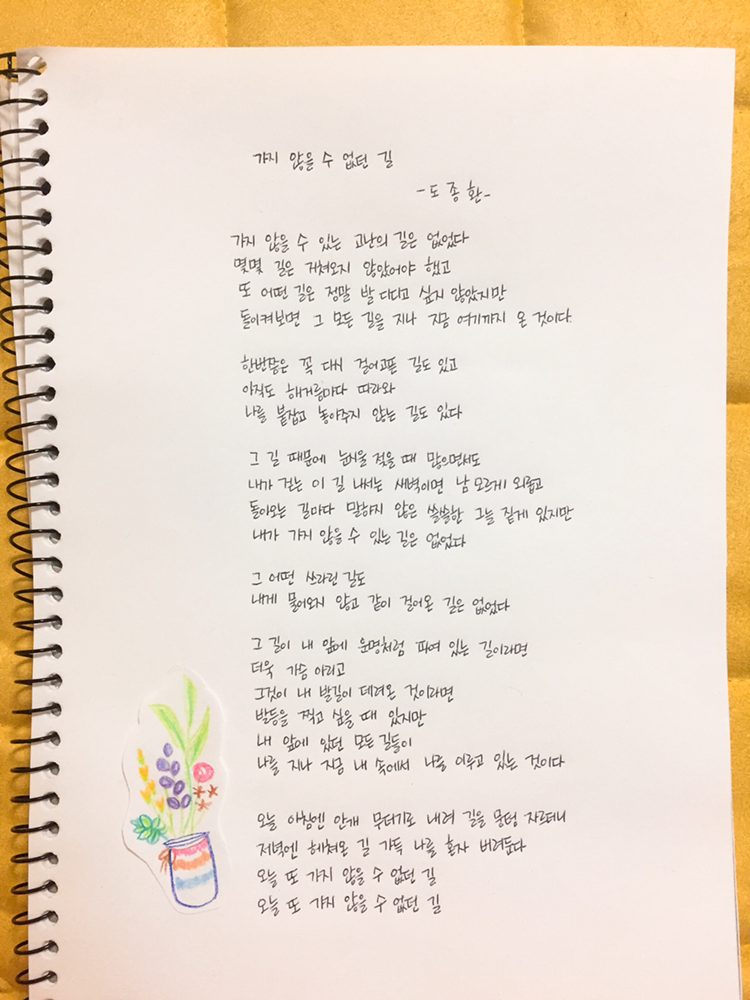 가지 않을 수 없던 길
-도종환-
가지 않을 수 있는 고난의 길은 없었다
몇몇 길은 거쳐오지 않았어야 했고
또 어떤 길은 정말 발 디디고 싶지 않았지만
돌이켜보면 그 모든 길을 지나 지금 여기까지 온 것이다.
한번쯤은 꼭 다시 걸어고픈 길도 있고
아직도 해거름마다 따라와
나를 붙잡고 놓아주지 않는 길도 있다
그 길 때문에 눈시울 젖을 때 많으면서도
내가 걷는 이 길 나서는 새벽이면 남 모르게 외롭고
돌아오는 길마다 말하지 않은 쓸쓸한 그늘 짙게 있지만
내가 가지 않을 수 있는 길은 없었다
그 어떤 쓰라린 길도
내게 물어오지 않고 같이 걸어온 길은 없었다
그 길이 내 앞에 운명처럼 파여 있는 길이라면
더욱 가슴 아리고
그것이 내 발길이 데려온 것이라면
발등을 찍고 싶을 때 있지만
내 앞에 있던 모든 길들이
나를 지나 지금 내 속에서 나를 이루고 있는 것이다
오늘 아침엔 안개 무더기로 내려 길을 뭉텅 자르더니
저녁엔 헤쳐온 길 가득 나를 혼자 버려둔다
오늘 또 가지 않을 수 없던 길
오늘 또 가지 않을 수 없던 길